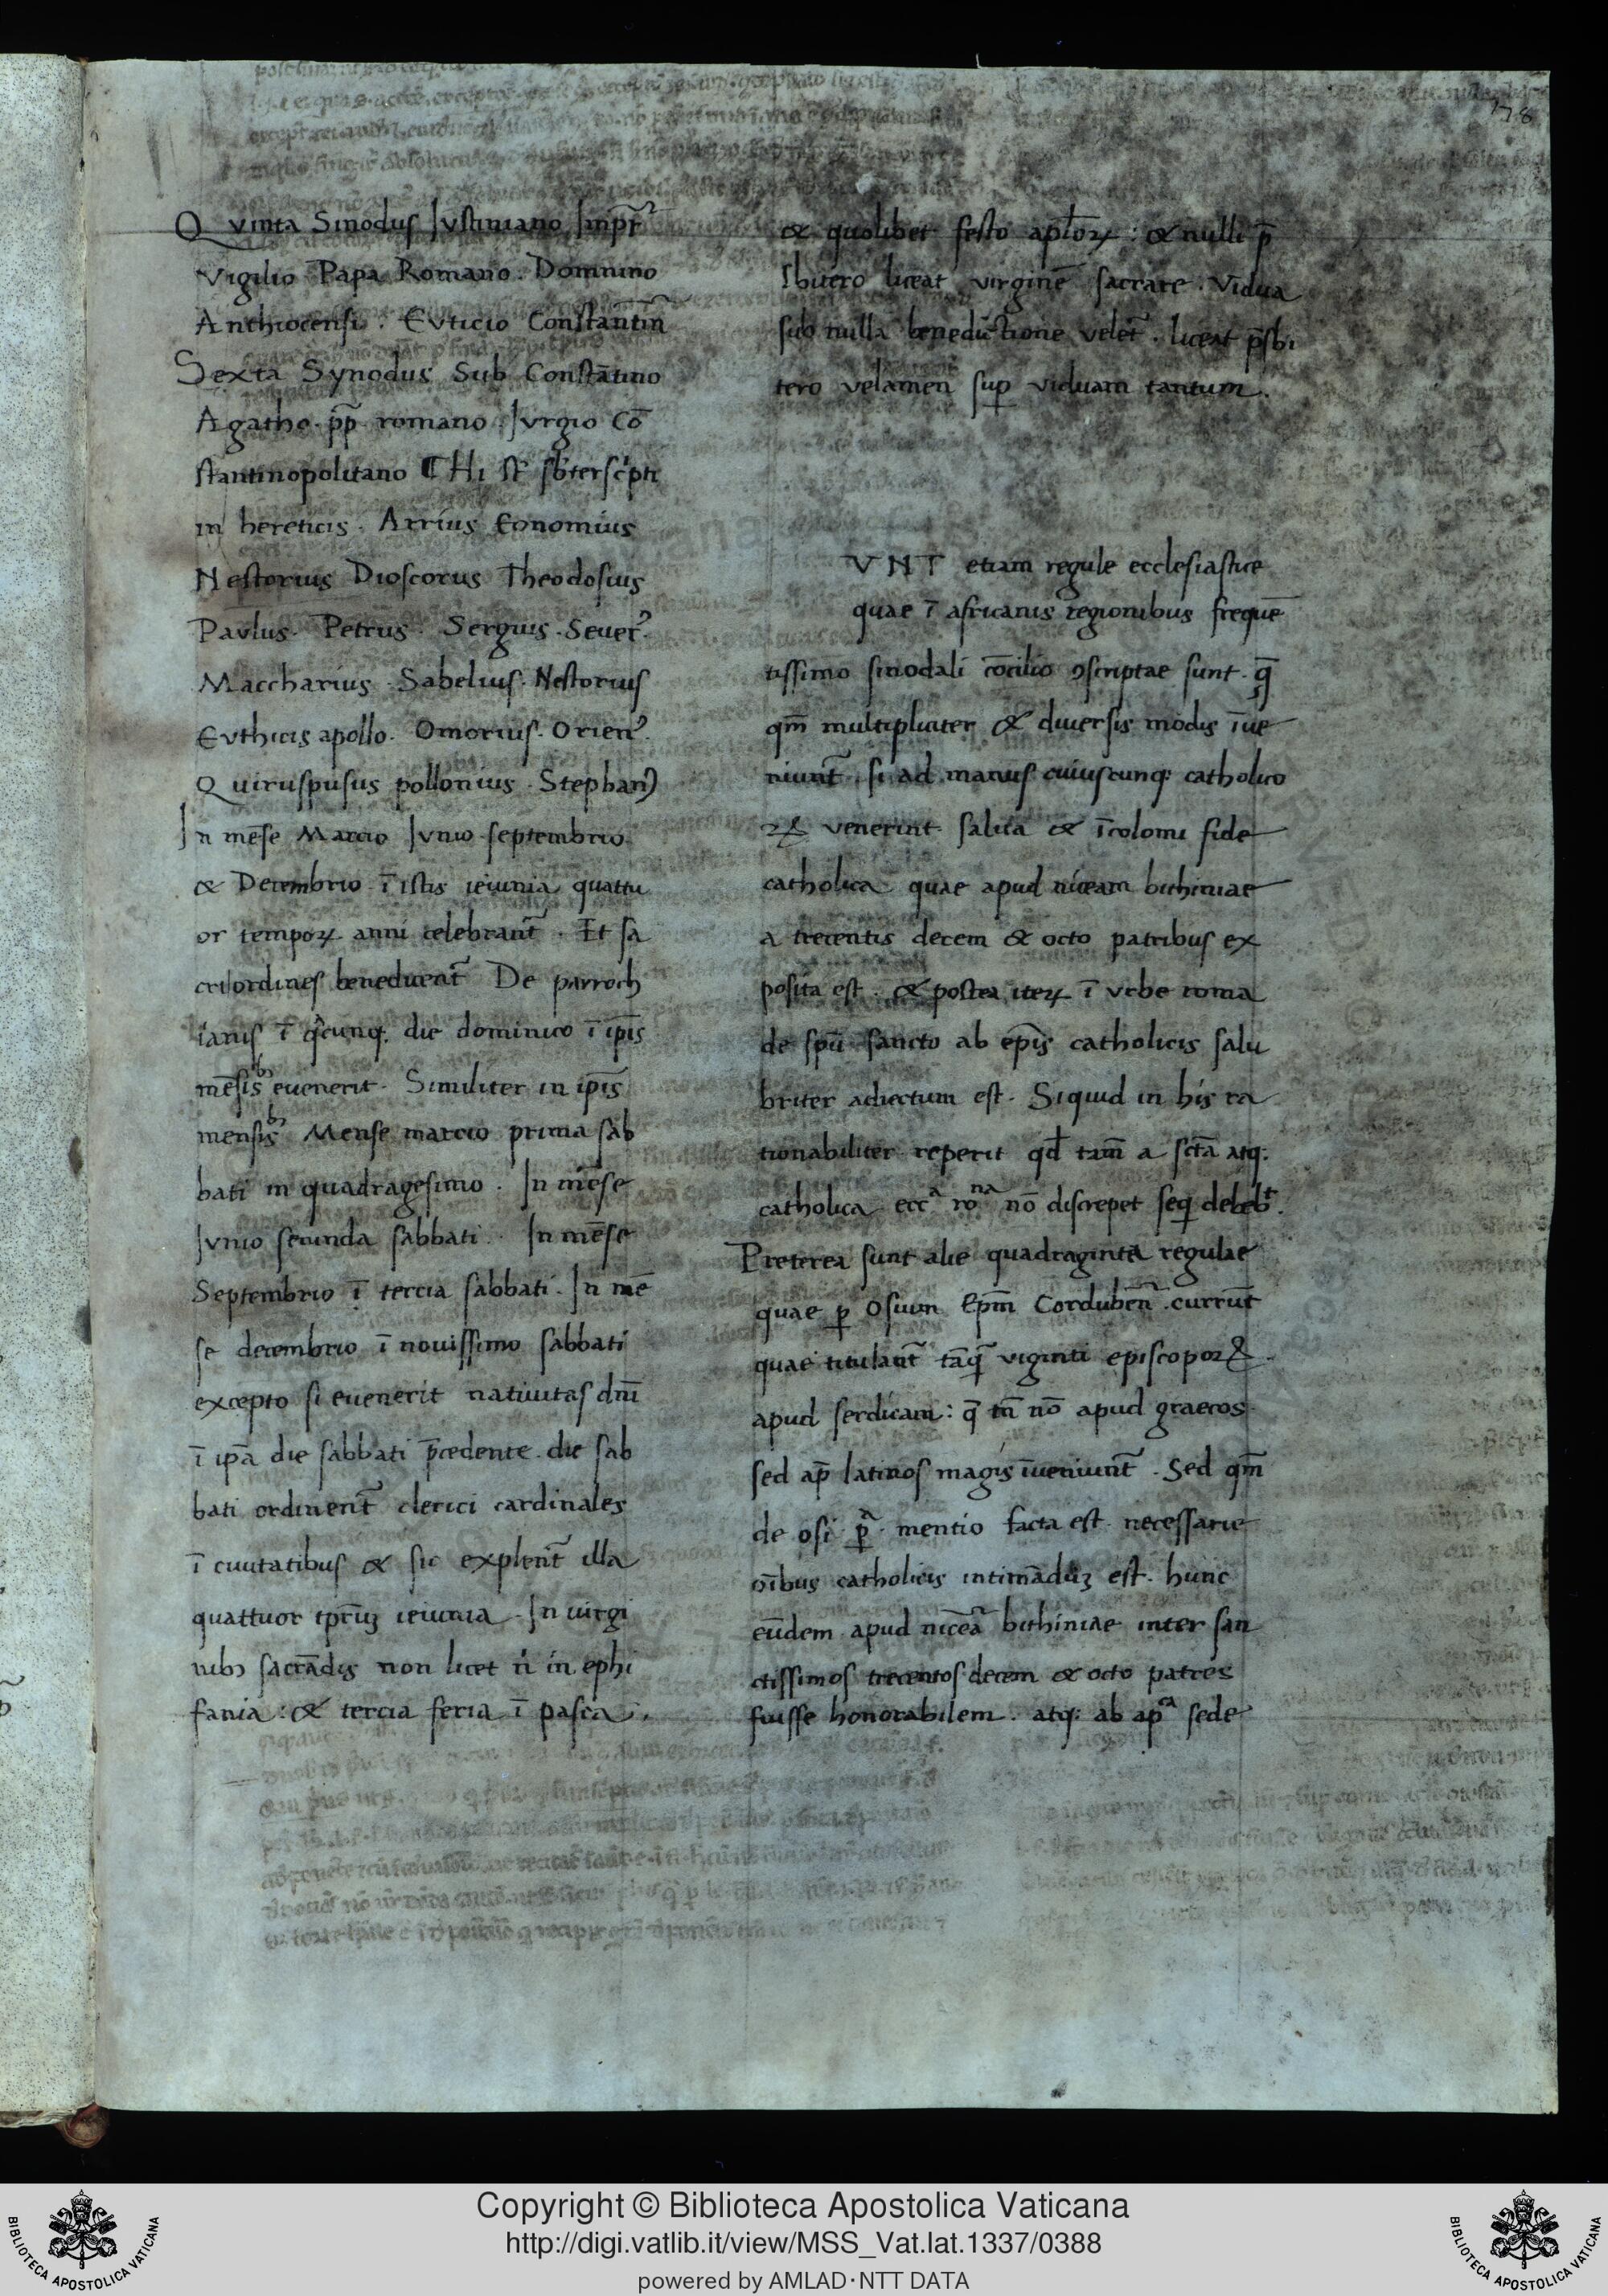 178
Qvinta Sinodus Iustiniano Inpr̄
Vigilio Papa Romano. Domnino
Anthiocensi. Evticio Constantin̄
Sexta Synodus Sub Constātino
Agatho. pp̄ romano. Ivrgio Cō
stantinopolitano Hi st̄ sbterscpti
in hereticis. Arrius Eonomius
Nestorius Dioscorus Theodosius
Pavlus. Petrus. Sergius. Seuer᾽.
Maccharius. Sabelius. Nestorius
Evthicis apollo. Omorius. Orien᾽.
Quiruspusus pollonius. Stephan᾽
In mēse Marcio Ivnio septembrio
& Decembrio ī istis ieiunia quattu
or tempoꝝ anni celebrant̄. Et sa
cri ordines beneducent̄ De parroch
ianis ī qͥcunq; die dominico ī ip̄is
mēsisᵇ euenerit. Similiter in ip̄is
mensisᵇ Mense marcio prima sab
bati in quadragesimo. In mēse
Ivnio secunda sabbati. In mēse
Septembrio ī tercia sabbati. In mē
se decembrio ī nouissimo sabbati
excepto si euenerit natiuitas dn̄i
ī ipā die sabbati p̄cedente die sab
bati ordinent̄ clerici cardinales
ī ciuitatibus & sic explent̄ illa
quattuor tpr̄uꝫ ieiunia. In uirgi
nibꝫ sacrādis non licet n̄ in ephi
fania: & tercia feria ī pasca.
& quolibet festo aplōꝝ: & nulli p̄
sbitero liceat virginē sacrare. Vidua
sub nulla benedictione velet̄. liceat p̄sbi
tero velamen suꝑ viduam tantum.
VNT etiam regule ecclesiastice
quae ī africanis regionibus frequē
tissimo sinodali cōcilio ꝯscriptae sunt. q̄
qm̄ multipliciter & diuersis modis īue
niunt̄. si ad manus cuiuscunq; catholico
ꝝ venerint salua & īcolomi fide
catholica quae apud niceam bithiniae
a trecentis decem & octo patribus ex
posita est. & postea iteꝝ ī vrbe roma
de spū sancto ab ep̄is catholicis salu
briter adiectum est. Siquid in his ra
tionabiliter reperit qd̄ tam̄ a sctā atq;
catholica eccᵃ roⁿᵃ nō discrepet seq̄ debebᵗ.
Preterea sunt alie quadraginta regulae
quae ꝑ Osium Epm̄ Cordubēn̄. currūt
quae titulant̄ tāq̄ viginti episcopoꝝ.
apud serdicam: q̄ tn̄ nō apud graecos
sed ap̄ latinos magis īueniunt̄. Sed qm̄
de osi ꝑᵃ mentio facta est. necessarie
oībus catholicis intimāduꝫ est. hunc
eūdem apud niceā bithiniae inter san
ctissimos trecentos decem & octo patres
fuisse honorabilem. atq; ab apᵃ sede
Copyright © Biblioteca Apostolica Vaticana
http://digi.vatlib.it/view/MSS_Vat.lat.1337/0388
powered by AMLAD·NTT DATA
BIBLIOTECA APOSTOLICA VATICANA
BIBLIOTECA APOSTOLICA VATICANA